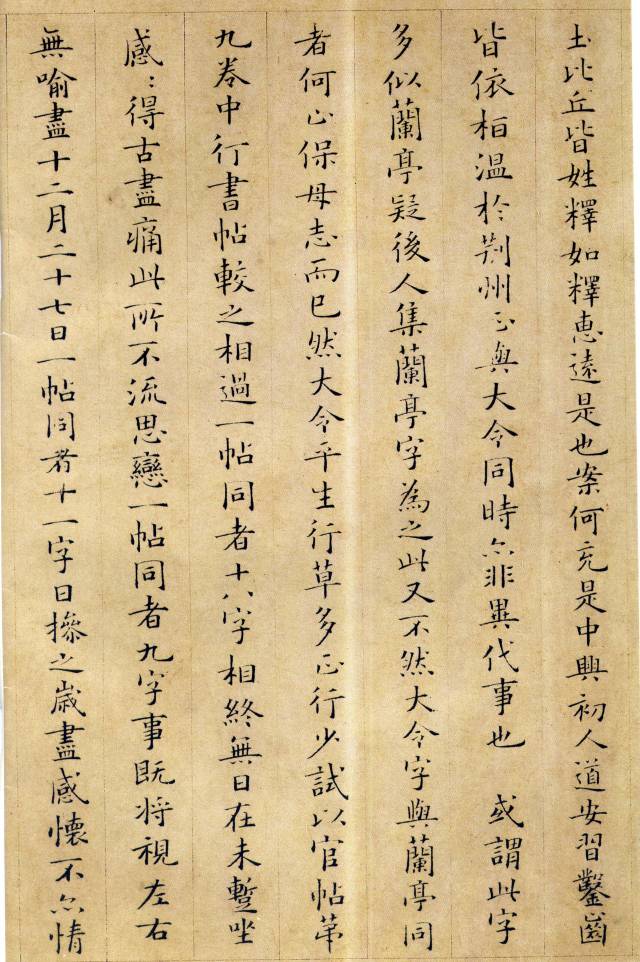 土比丘皆姓釋如釋惠遠是也案何充是中興初人道安習鑿齒
皆依桓溫於荆州正與大令同時亦非異代事也 或謂此字
多似蘭亭疑後人集蘭亭字為之此又不然大令字與蘭亭同
者何止保母志而已然大令平生行草多正行少試以官帖苐
九卷中行書帖較之相過一帖同者十八字相終無日在未蹔坐
感〻得古盡痛此所不流思戀一帖同者九字事既将視左右
無喻盡十二月二十七日一帖同者十一字日摻之歲盡感懷不亦情